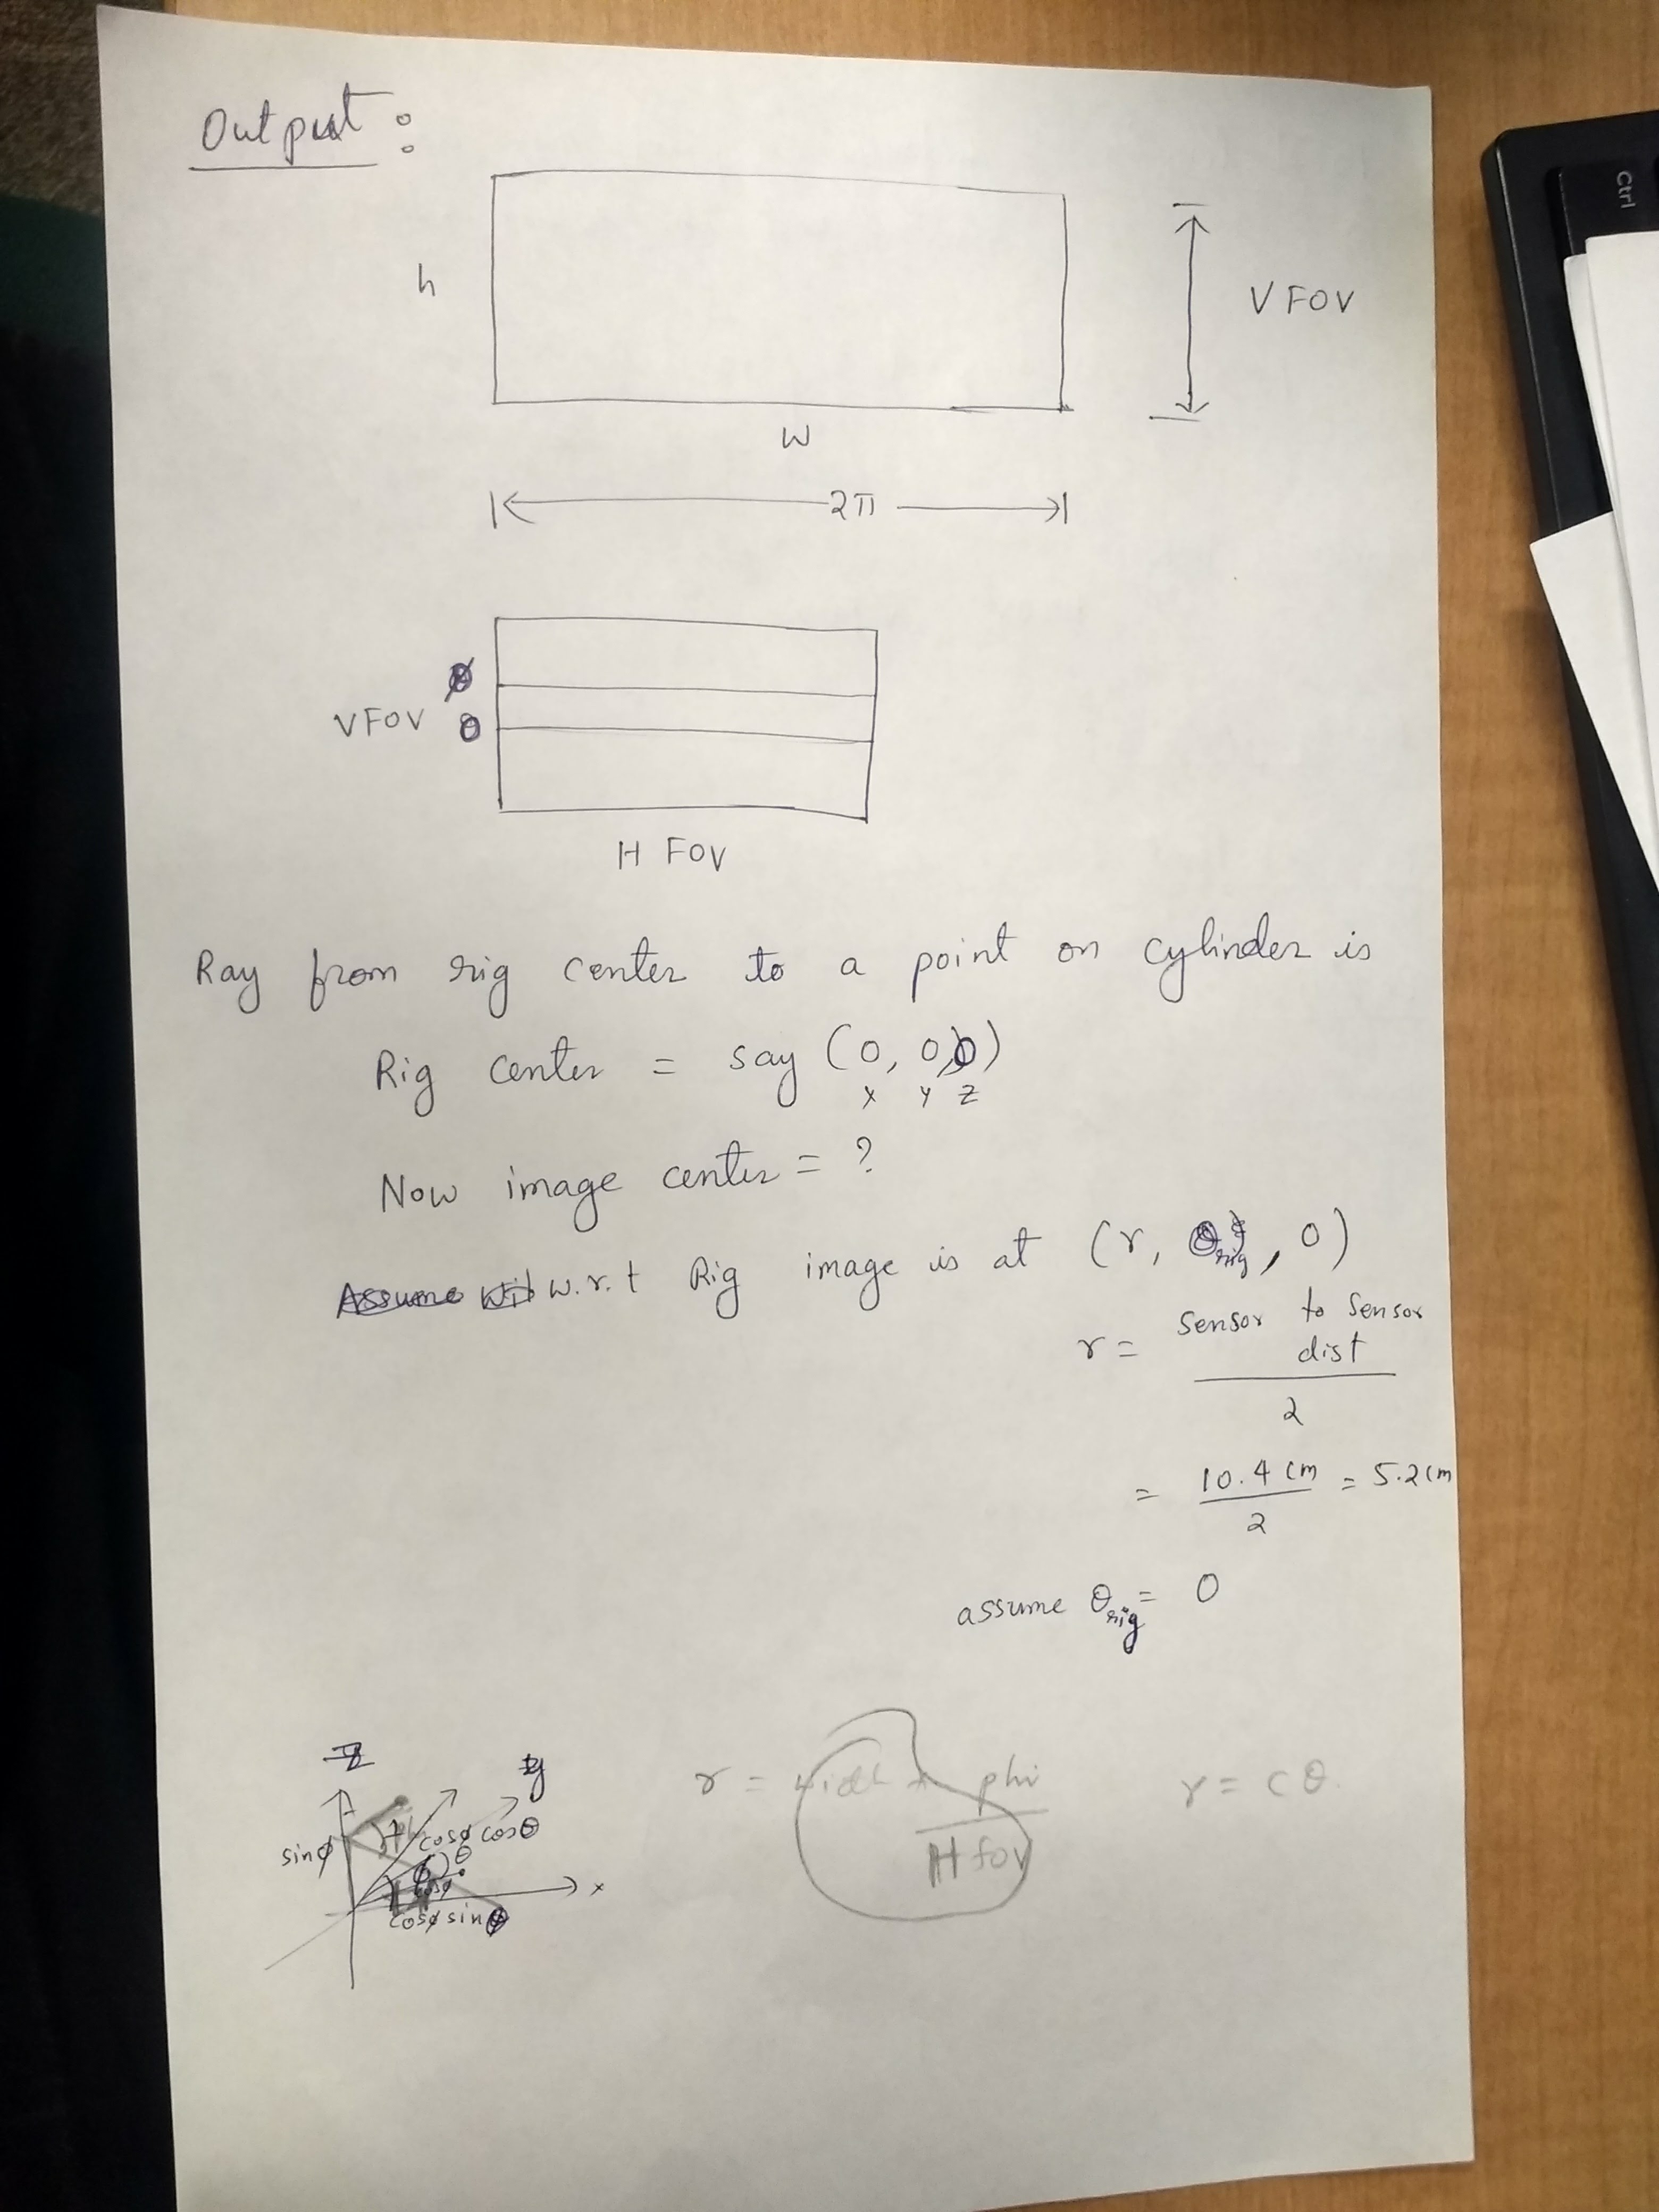 Output :
h
V FOV
W
2π
VFOV θ
H FOV
Ray from rig center to a point on cylinder is
Rig center = say (0, 0, 0)
x y z
Now image center = ?
w.r.t Rig image is at (r, θrig, 0)
r = sensor to sensor dist
2
= 10.4 cm = 5.2 cm
2
assume θrig = 0
y
sinϕ
cosϕ cosθ
ϕ θ
cosϕ
x
cosϕ sinθ
r = width * phi
H fov
r = cθ
Ctrl